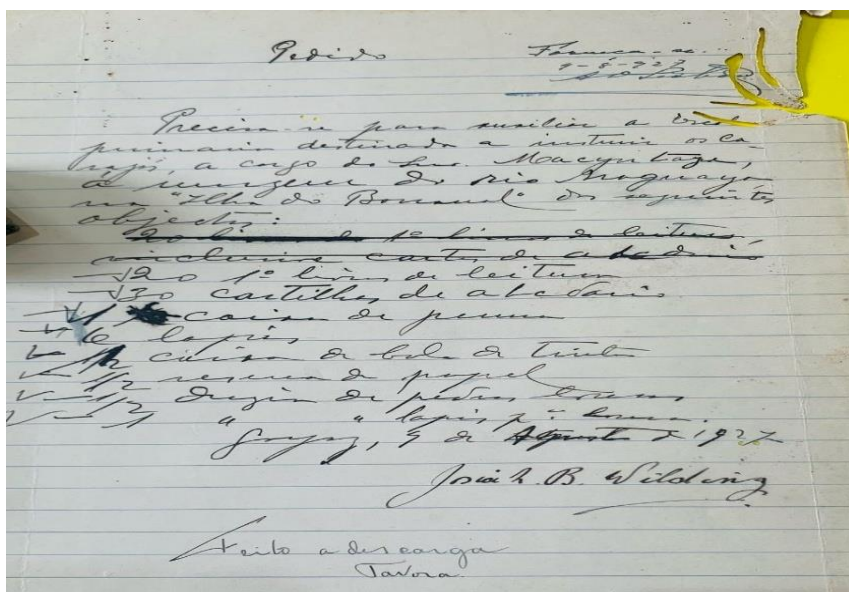 Pedido
Forneça-se.
9-8-927
Precisa-se para auxiliar a escola
primaria destinada a instruir os Ca-
rajás, a cargo do Snr. Macyntaze,
á margem do rio Araguaya,
na "Ilha do Bananal" dos seguintes
objectos:
20 1º livros de leitura,
inclusive cartas de abedario
20 1º livros de leitura
30 cartilhas de abedario
1 caixa de penna
6 lapis
1/2 caixa de bola de tinta
1/2 resma de papel
1/2 duzia de pedras lousas
1 " " lapis pª lousa.
Goyaz, 9 de Agosto de 1927
Josiah B. Wilding
Feito a descarga
Tavora